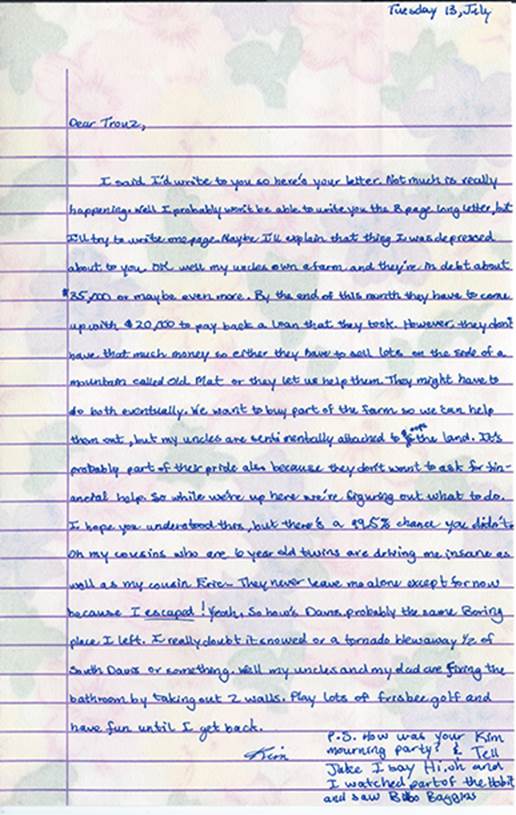 Tuesday 13, July
Dear Trouz,
I said I'd write to you so here's your letter. Not much is really
happening. Well I probably won't be able to write you the 8 page long letter, but
I'll try to write one page. Maybe I'll explain that thing I was depressed
about to you. OK well my uncles own a farm and they're in debt about
$35,000 or maybe even more. By the end of this month they have to come
up with $20,000 to pay back a loan that they took. However, they don't
have that much money so either they have to sell lots on the side of a
mountain called Old Mat or they let us help them. They might have to
do both eventually. We want to buy part of the farm so we can help
them out, but my uncles are sentimentally attached to oops the land. It's
probably part of their pride also because they don't want to ask for fin-
ancial help. So while we're up here we're figuring out what to do.
I hope you understood this, but there's a 99.5% chance you didn't.
Oh my cousins who are 6 year old twins are driving me insane as
well as my cousin Eric. They never leave me alone except for now
because I escaped! Yeah, So how's Davis. probably the same Boring
place I left. I really doubt it snowed or a tornado blew away 1/2 of
South Davis or something. Well my uncles and my dad are fixing the
bathroom by taking out 2 walls. Play lots of frisbee golf and
have fun until I get back.
Kim
P.S. How was your Kim
mourning party? & Tell
Jake I say Hi. oh and
I watched part of the Hobit
and saw Bilbo Baggins